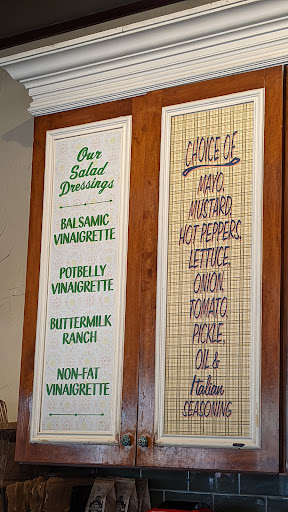 Our
Salad
Dressings
BALSAMIC
VINAIGRETTE
POTBELLY
VINAIGRETTE
BUTTERMILK
RANCH
NON-FAT
VINAIGRETTE
CHOICE OF
MAYO,
MUSTARD,
HOT PEPPERS,
LETTUCE,
ONION,
TOMATO,
PICKLE,
OIL &
Italian
SEASONING